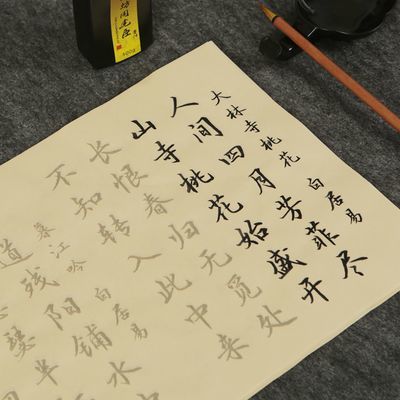 大林寺桃花 白居易
人间四月芳菲尽
山寺桃花始盛开
长恨春归无觅处
不知转入此中来
暮江吟 白居易
道残阳铺水中
瑟半